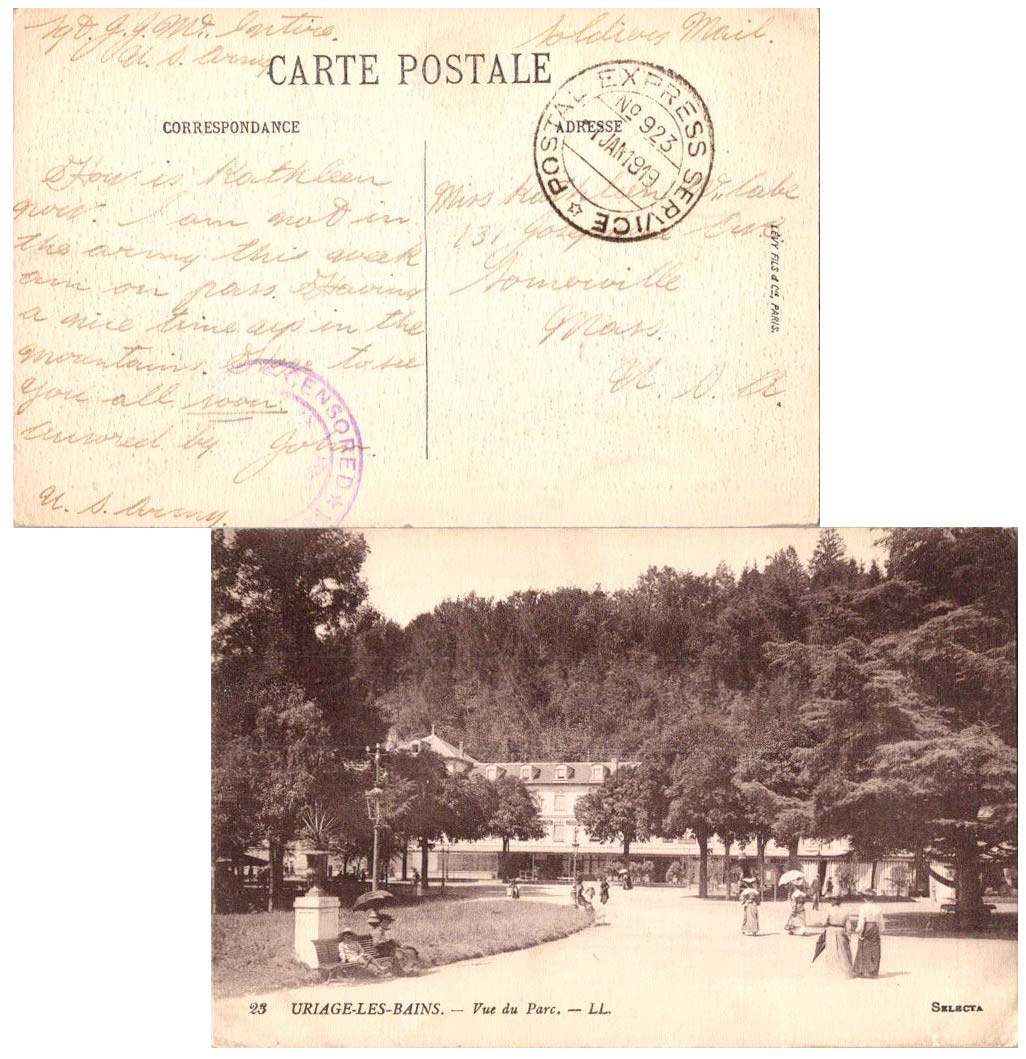 Soldiers Mail.
U. S. Army
CARTE POSTALE
CORRESPONDANCE
ADRESSE
POSTAL EXPRESS SERVICE
No 923
1 JAN 1919
How is Kathleen
now. I am not in
the army this week
am on pass. Having
a nice time up in the
mountains. Hope to see
you all soon.
Censored by John.
U. S. Army
CENSORED
Miss
131
Somerville
Mass.
U. S. A.
LÉVY FILS & Cie, PARIS.
23 URIAGE-LES-BAINS. — Vue du Parc. — LL.
SELECTA